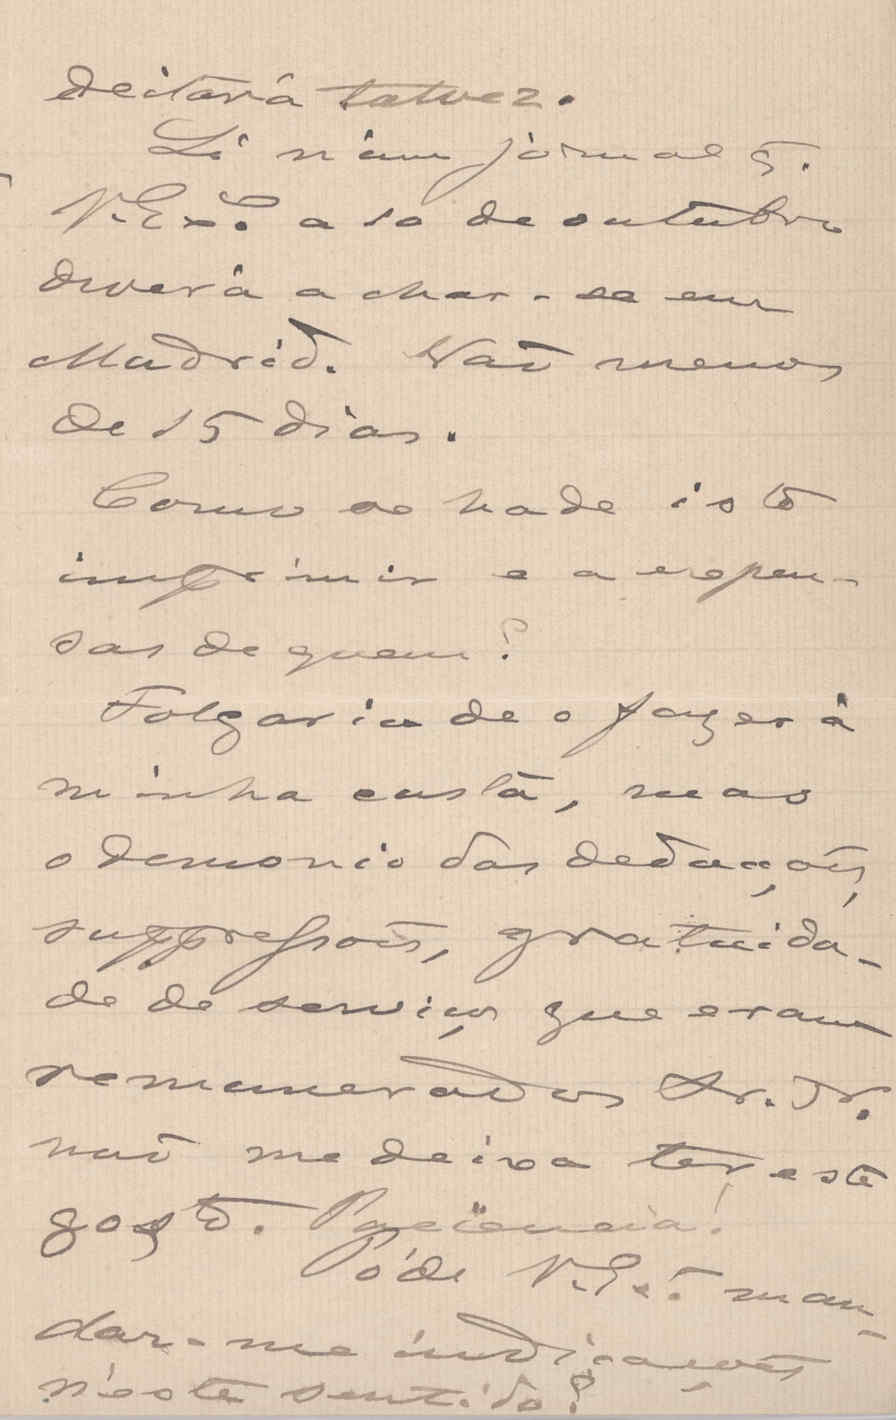 deitará talvez.
Li n'um jornal q.
V. Ex.ª a 10 de outubro
deverá achar-se em
Madrid. Naõ menos
de 15 dias.
Como se hade isto
imprimir e a expen-
sas de quem?
Folgaria de o fazer á
minha custa, mas
o demonio das deducções,
suppressões, gratuida-
de de serviços que eram
remunerados
naõ me deixa ter este
gosto. Paciencia!
Póde V. Ex.ª man-
dar-me indicações
n'este sentido?